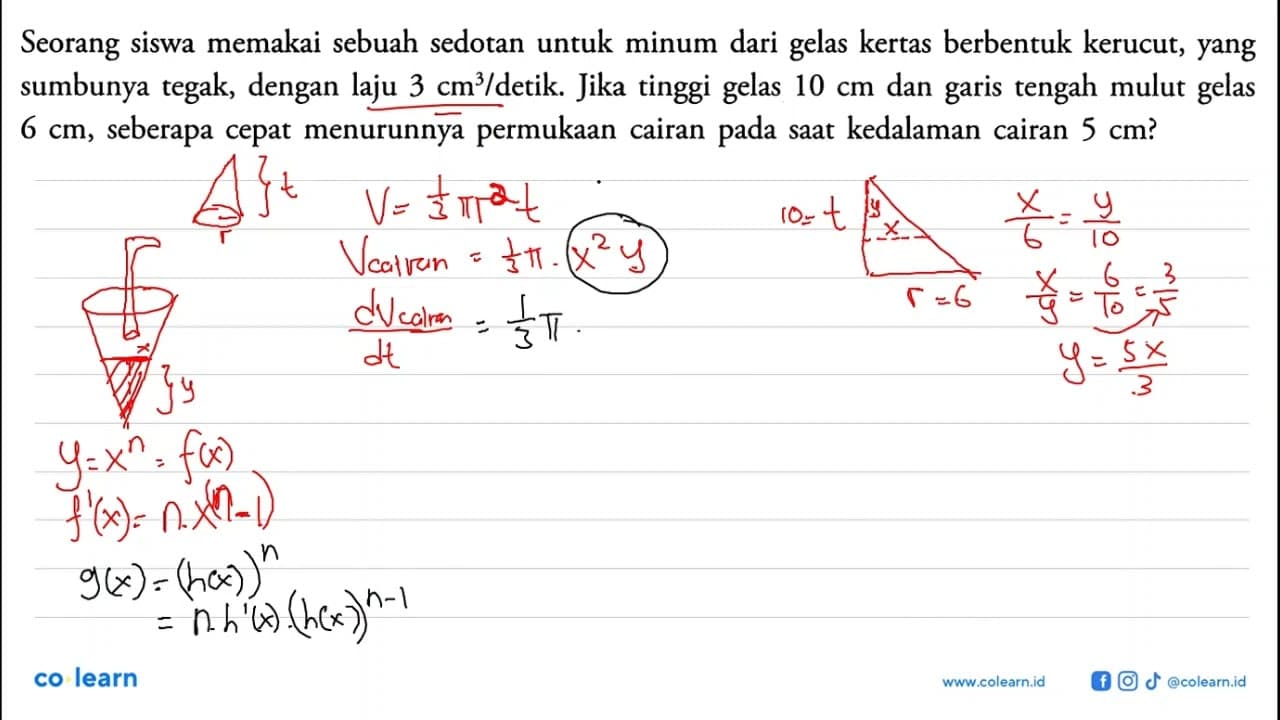 Seorang siswa memakai sebuah sedotan untuk minum dari gelas kertas berbentuk kerucut, yang
sumbunya tegak, dengan laju 3 cm³/detik. Jika tinggi gelas 10 cm dan garis tengah mulut gelas
6 cm, seberapa cepat menurunnya permukaan cairan pada saat kedalaman cairan 5 cm?
} t
r
V = 1/3 πr²t
Vcairan = 1/3 π . x² y
dVcairan/dt = 1/3 π .
10 = t
y
x
r = 6
x/6 = y/10
x/y = 6/10 = 3/5
y = 5x/3
x
} y
y = x^n = f(x)
f'(x) = n.x^(n-1)
g(x) = (h(x))^n
= n.h'(x).(h(x))^n-1
co learn
www.colearn.id
@colearn.id